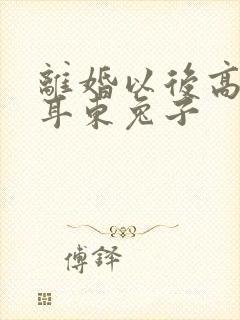 離婚以後高
耳東兔子
傅鐸